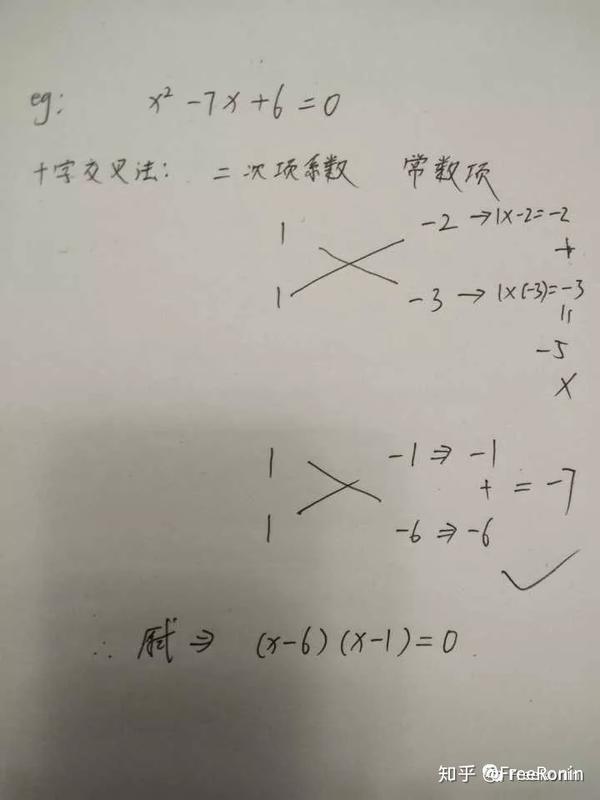 eg: x² -7x+6=0
十字交叉法: 二次项系数 常数项
1 -2 →1×-2=-2
+
1 -3 →1×(-3)=-3
=
-5
×
1 -1 ⇒ -1
+ = -7
1 -6 ⇒ -6
✓
∴ 原式 ⇒ (x-6)(x-1)=0
知乎 @FreeRonin